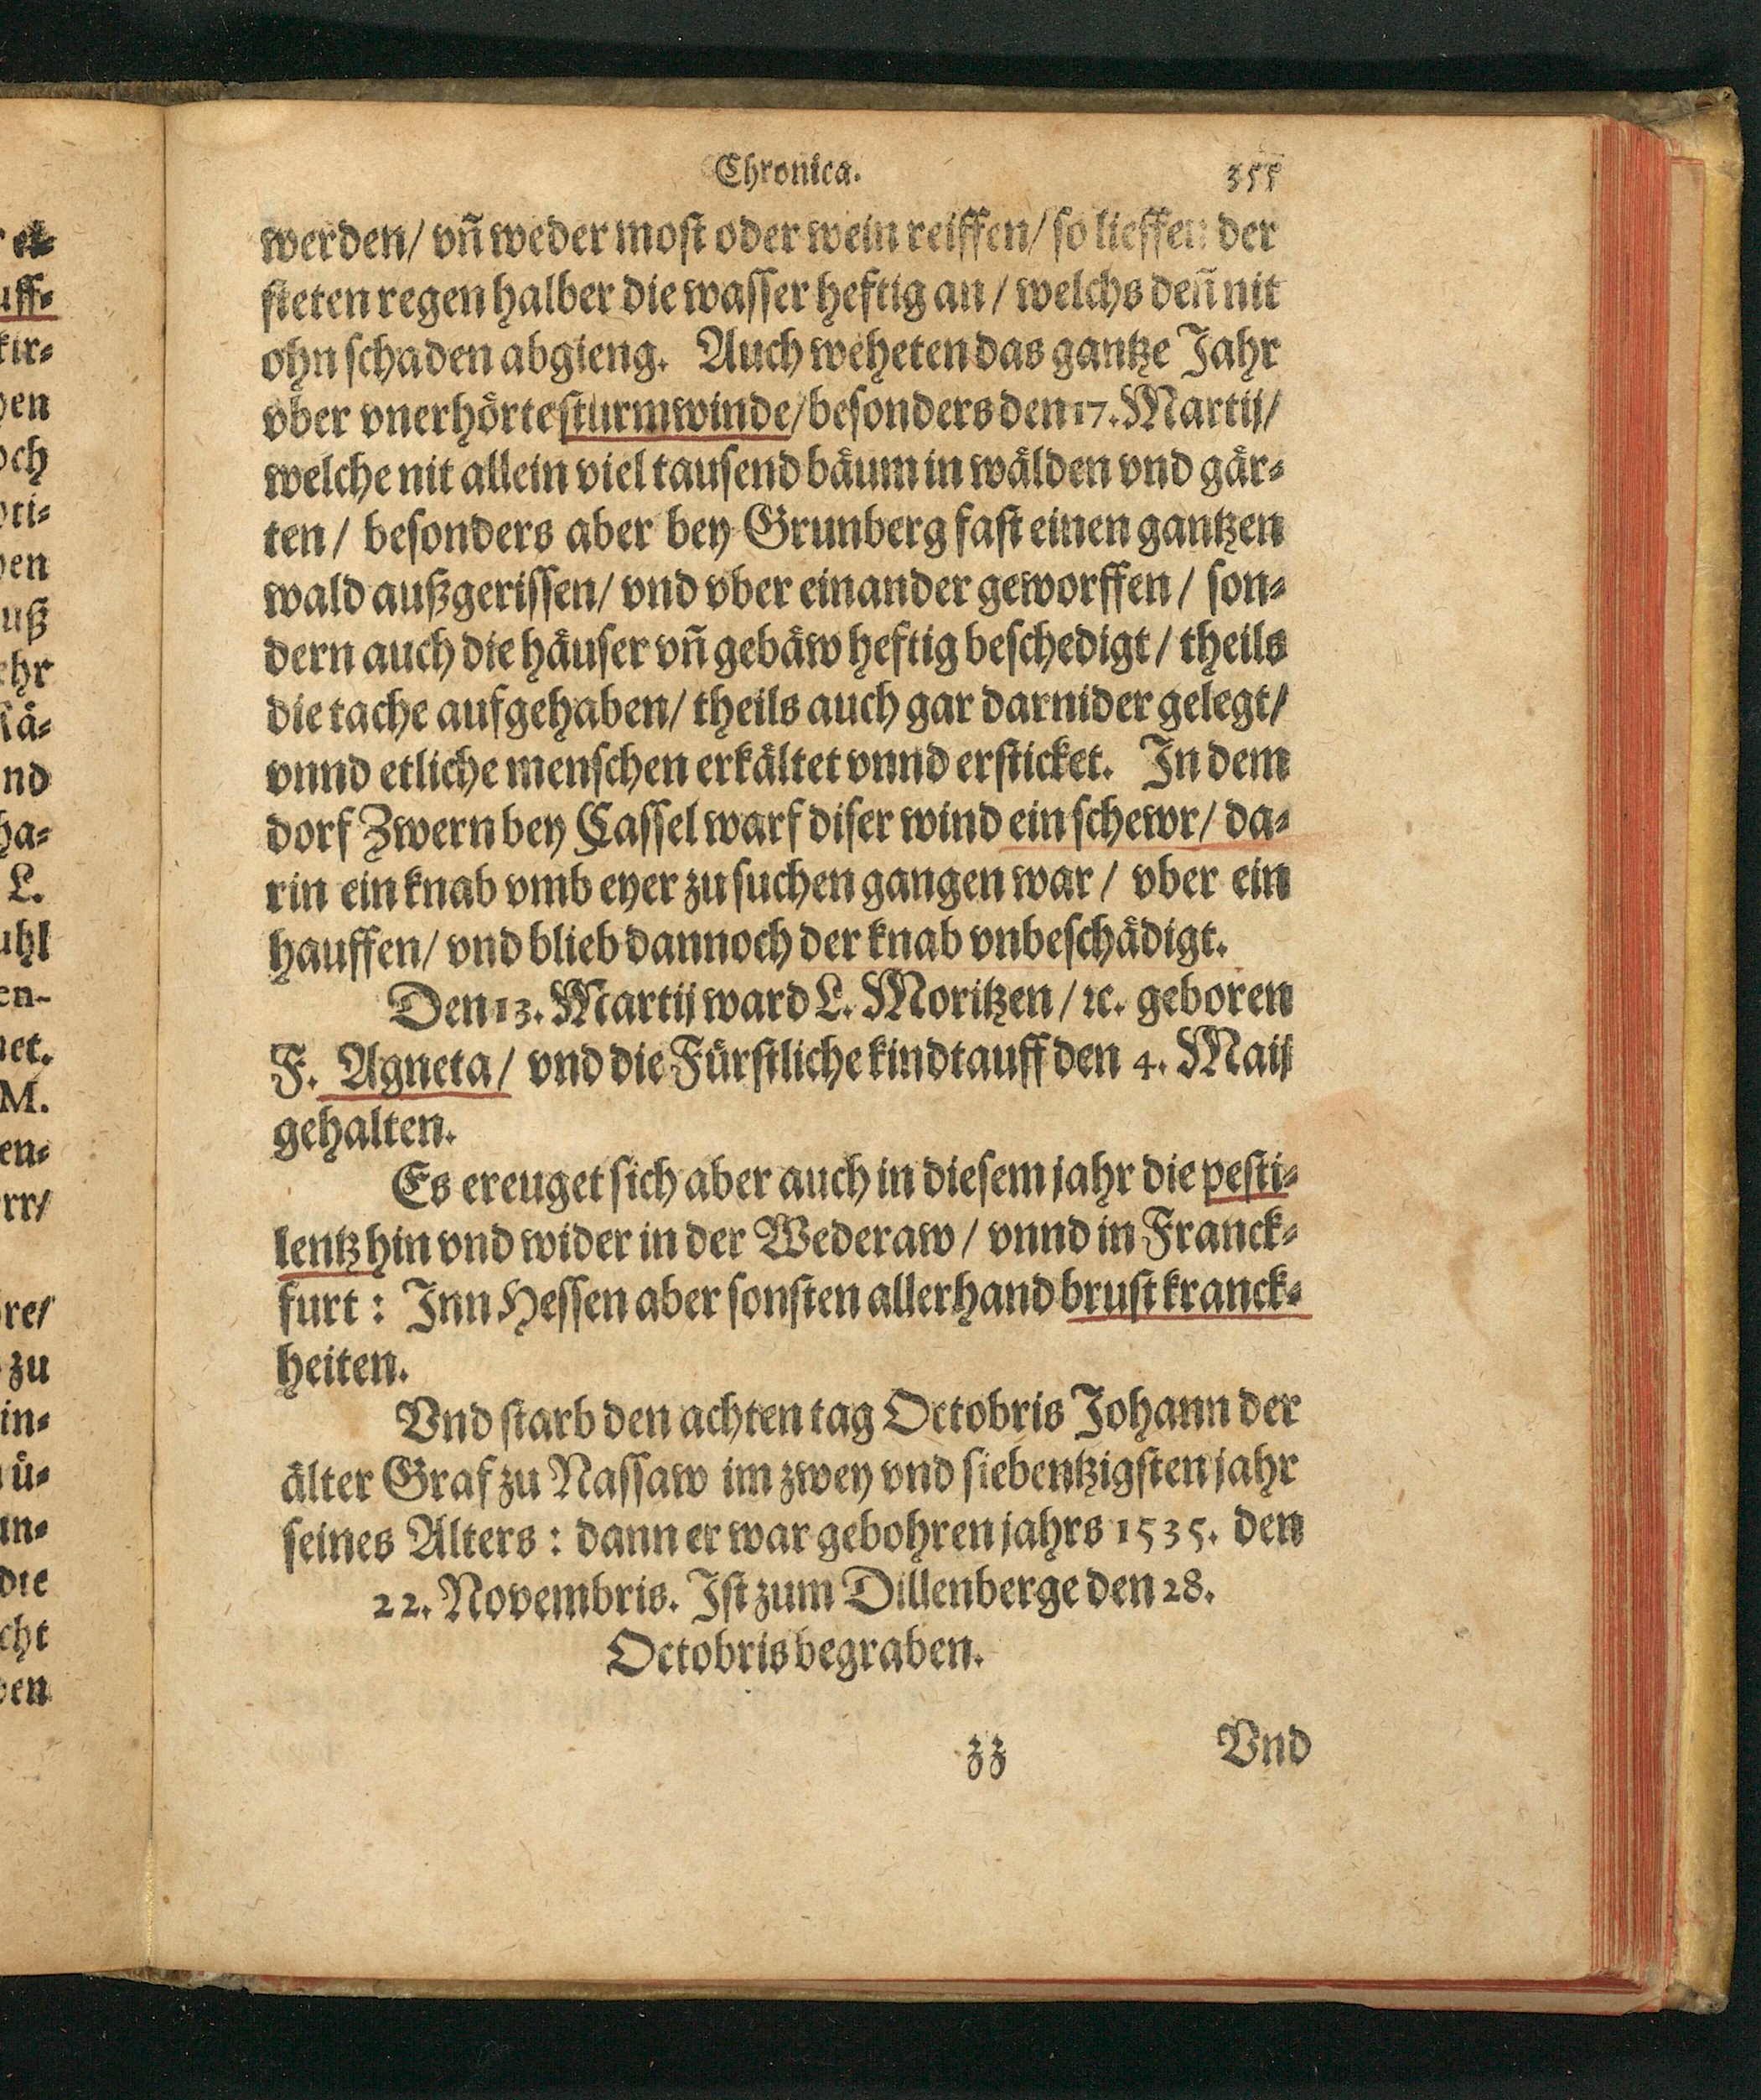 Chronica. 355
werden/ vñ weder most oder wein reiffen/ so lieffen der
steten regen halber die wasser heftig an/ welchs deñ nit
ohn schaden abgieng. Auch weheten das gantze Jahr
vber vnerhörte sturmwinde/ besonders den 17. Martij/
welche nit allein viel tausend bäum in wälden vnd gär-
ten/ besonders aber bey Grunberg fast einen gantzen
wald außgerissen/ vnd vber einander geworffen/ son-
dern auch die häuser vñ gebäw heftig beschedigt/ theils
die tache aufgehaben/ theils auch gar darnider gelegt/
vnnd etliche menschen erkältet vnnd ersticket. In dem
dorf Zwern bey Cassel warf diser wind ein schewr/ da-
rin ein knab vmb eyer zu suchen gangen war/ vber ein
hauffen/ vnd blieb dannoch der knab vnbeschädigt.
Den 13. Martij ward L. Moritzen/ ꝛc. geboren
F. Agneta/ vnd die Fürstliche kindtauff den 4. Maij
gehalten.
Es ereuget sich aber auch in diesem jahr die pesti-
lentz hin vnd wider in der Wederaw/ vnnd in Franck-
furt: Inn Hessen aber sonsten allerhand brustkranck-
heiten.
Vnd starb den achten tag Octobris Johann der
älter Graf zu Nassaw im zwey vnd siebentzigsten jahr
seines Alters: dann er war gebohren jahrs 1535. den
22. Novembris. Ist zum Dillenberge den 28.
Octobris begraben.
zz Vnd